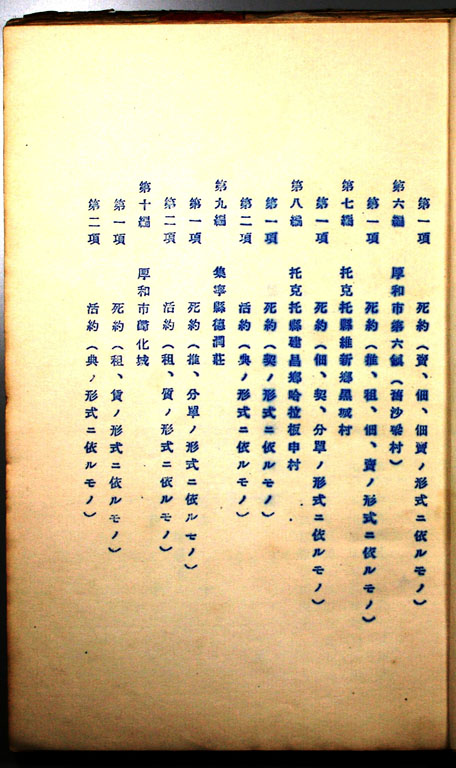 第一項 死約（賣、佃、佃賣ノ形式ニ依ルモノ）
第六編 厚和市第六鎭（ 沙 村）
第一項 死約（推、租、佃、賣ノ形式ニ依ルモノ）
第七編 托克托縣維新鄉黑城村
第一項 死約（佃、契、分單ノ形式ニ依ルモノ）
第八編 托克托縣建昌鄉哈拉板申村
第一項 死約（契ノ形式ニ依ルモノ）
第二項 活約（典ノ形式ニ依ルモノ）
第九編 集寧縣德潤莊
第一項 死約（推、分單ノ形式ニ依ルモノ）
第二項 活約（租、質ノ形式ニ依ルモノ）
第十編 厚和市 化城
第一項 死約（租、賃ノ形式ニ依ルモノ）
第二項 活約（典ノ形式ニ依ルモノ）